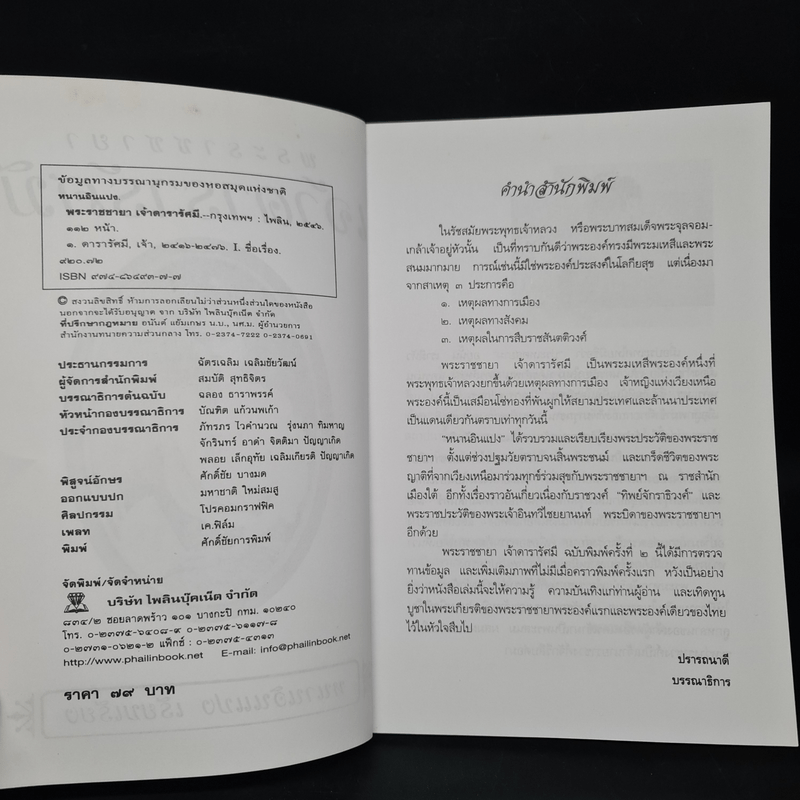 ข้อมูลทางบรรณานุกรมของหอสมุดแห่งชาติ
หนานอินแปง.
พระราชชายา เจ้าดารารัศมี.--กรุงเทพฯ : ไพลิน, ๒๕๔๖.
๑๑๒ หน้า.
๑. ดารารัศมี, เจ้า, ๒๔๑๖-๒๔๗๖. I. ชื่อเรื่อง.
๙๒๐.๗๒
ISBN ๙๗๔-๘๖๔๙๓-๗-๗
© สงวนลิขสิทธิ์ ห้ามการลอกเลียนไม่ว่าส่วนหนึ่งส่วนใดของหนังสือ
นอกจากจะได้รับอนุญาต จาก บริษัท ไพลินบุ๊คเน็ต จำกัด
ที่ปรึกษากฎหมาย อนันต์ แย้มเกษร น.บ., นศ.ม. ผู้อำนวยการ
สำนักงานทนายความส่วนกลาง โทร. 0-2374-7222 0-2374-0691
ประธานกรรมการ ฉัตรเฉลิม เฉลิมชัยวัฒน์
ผู้จัดการสำนักพิมพ์ สมบัติ สุทธิจิตร
บรรณาธิการต้นฉบับ ฉลอง ธาราพรรค์
หัวหน้ากองบรรณาธิการ บัณฑิต แก้วนพเก้า
ประจำกองบรรณาธิการ ภัทรภร ไวคำนวณ รุ่งนภา ทิมหาญ
จักรินทร์ อาดำ จิตติมา ปัญญาเกิด
พลอย เล็กอุทัย เฉลิมเกียรติ ปัญญาเกิด
พิสูจน์อักษร ศักดิ์ชัย บางมด
ออกแบบปก มหาชาติ ใหม่สมสู
ศิลปกรรม โปรคอมกราฟฟิค
เพลท เค.ฟิล์ม
พิมพ์ ศักดิ์ชัยการพิมพ์
จัดพิมพ์/จัดจำหน่าย
บริษัท ไพลินบุ๊คเน็ต จำกัด
๘๓๔/๒ ซอยลาดพร้าว ๑๐๑ บางกะปิ กทม. ๑๐๒๔๐
โทร. ๐-๒๓๗๕-๖๔๐๘-๙ ๐-๒๓๗๕-๖๑๑๗-๘
๐-๒๗๓๑-๐๖๒๑-๒ แฟ็กซ์ : ๐-๒๓๗๕-๔๓๑๓
http://www.phailinbook.net E-mail: info@phailinbook.net
ราคา ๗๙ บาท
คำนำสำนักพิมพ์
ในรัชสมัยพระพุทธเจ้าหลวง หรือพระบาทสมเด็จพระจุลจอม-
เกล้าเจ้าอยู่หัวนั้น เป็นที่ทราบกันดีว่าพระองค์ทรงมีพระมเหสีและพระ
สนมมากมาย การณ์เช่นนี้มิใช่พระองค์ประสงค์ในโลกียสุข แต่เนื่องมา
จากสาเหตุ ๓ ประการคือ
๑. เหตุผลทางการเมือง
๒. เหตุผลทางสังคม
๓. เหตุผลในการสืบราชสันตติวงศ์
พระราชชายา เจ้าดารารัศมี เป็นพระมเหสีพระองค์หนึ่งที่
พระพุทธเจ้าหลวงยกขึ้นด้วยเหตุผลทางการเมือง เจ้าหญิงแห่งเวียงเหนือ
พระองค์นี้เป็นเสมือนโซ่ทองที่พันผูกให้สยามประเทศและล้านนาประเทศ
เป็นแดนเดียวกันตราบเท่าทุกวันนี้
“หนานอินแปง” ได้รวบรวมและเรียบเรียงพระประวัติของพระราช
ชายาฯ ตั้งแต่ช่วงปฐมวัยตราบจนสิ้นพระชนม์ และเกร็ดชีวิตของพระ
ญาติที่จากเวียงเหนือมาร่วมทุกข์ร่วมสุขกับพระราชชายาฯ ณ ราชสำนัก
เมืองใต้ อีกทั้งเรื่องราวอันเกี่ยวเนื่องกับราชวงศ์ “ทิพย์จักราธิวงศ์” และ
พระราชประวัติของพระเจ้าอินทวิไชยยานนท์ พระบิดาของพระราชชายาฯ
อีกด้วย
พระราชชายา เจ้าดารารัศมี ฉบับพิมพ์ครั้งที่ ๒ นี้ได้มีการตรวจ
ทานข้อมูล และเพิ่มเติมภาพที่ไม่มีเมื่อคราวพิมพ์ครั้งแรก หวังเป็นอย่าง
ยิ่งว่าหนังสือเล่มนี้จะให้ความรู้ ความบันเทิงแก่ท่านผู้อ่าน และเทิดทูน
บูชาในพระเกียรติของพระราชชายาพระองค์แรกและพระองค์เดียวของไทย
ไว้ในหัวใจสืบไป
ปรารถนาดี
บรรณาธิการ